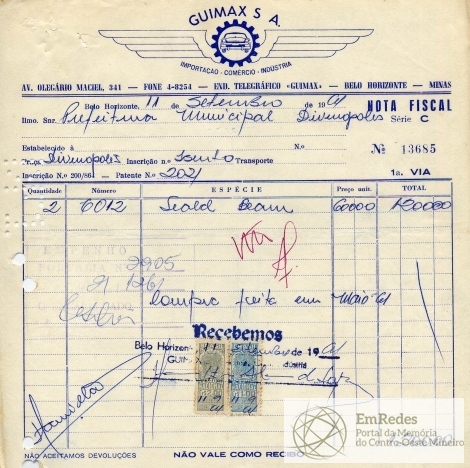 GUIMAX S A.
IMPORTAÇÃO - COMÉRCIO - INDÚSTRIA
AV. OLEGÁRIO MACIEL, 341 — FONE 4-8254 — END. TELEGRÁFICO «GUIMAX» — BELO HORIZONTE — MINAS
Belo Horizonte, 11 de Setembro de 1961 NOTA FISCAL
Ilmo. Snr. Prefeitura Municipal Divinopolis Série C
Estabelecido à N.o Nº 13685
Divinopolis Inscrição n.o Isento Transporte
Inscrição N.o 200/86 — Patente N.o 2021 1a. VIA
Quantidade Número ESPÉCIE Preço unit. TOTAL
2 6012 Seald Beam 60000 120000
2905
Compra feita em Maio 61
Recebemos
Belo Horizon de 1961
GUI
NÃO ACEITAMOS DEVOLUÇÕES NÃO VALE COMO RECIBO
EmRedes
Portal da Memória
do Centro-Oeste Mineiro